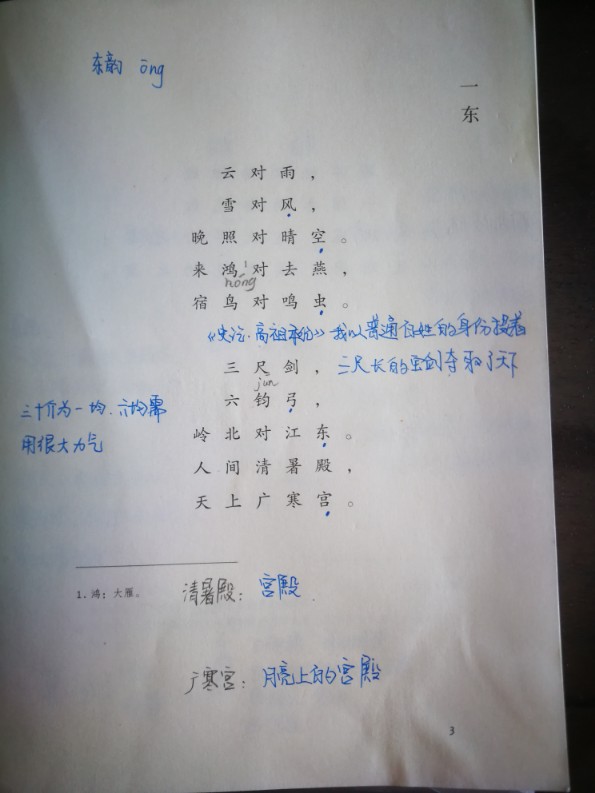 东韵 ōng
一东
云对雨，
雪对风，
晚照对晴空。
来鸿¹对去燕，
hóng
宿鸟对鸣虫。
《史记·高祖本纪》我以普通百姓的身份提着
三尺剑，三尺长的宝剑夺取了天下
jūn
六钧弓，
三十斤为一均.六均需
用很大力气
岭北对江东。
人间清暑殿，
天上广寒宫。
1. 鸿：大雁。
清暑殿：宫殿
广寒宫：月亮上的宫殿
3